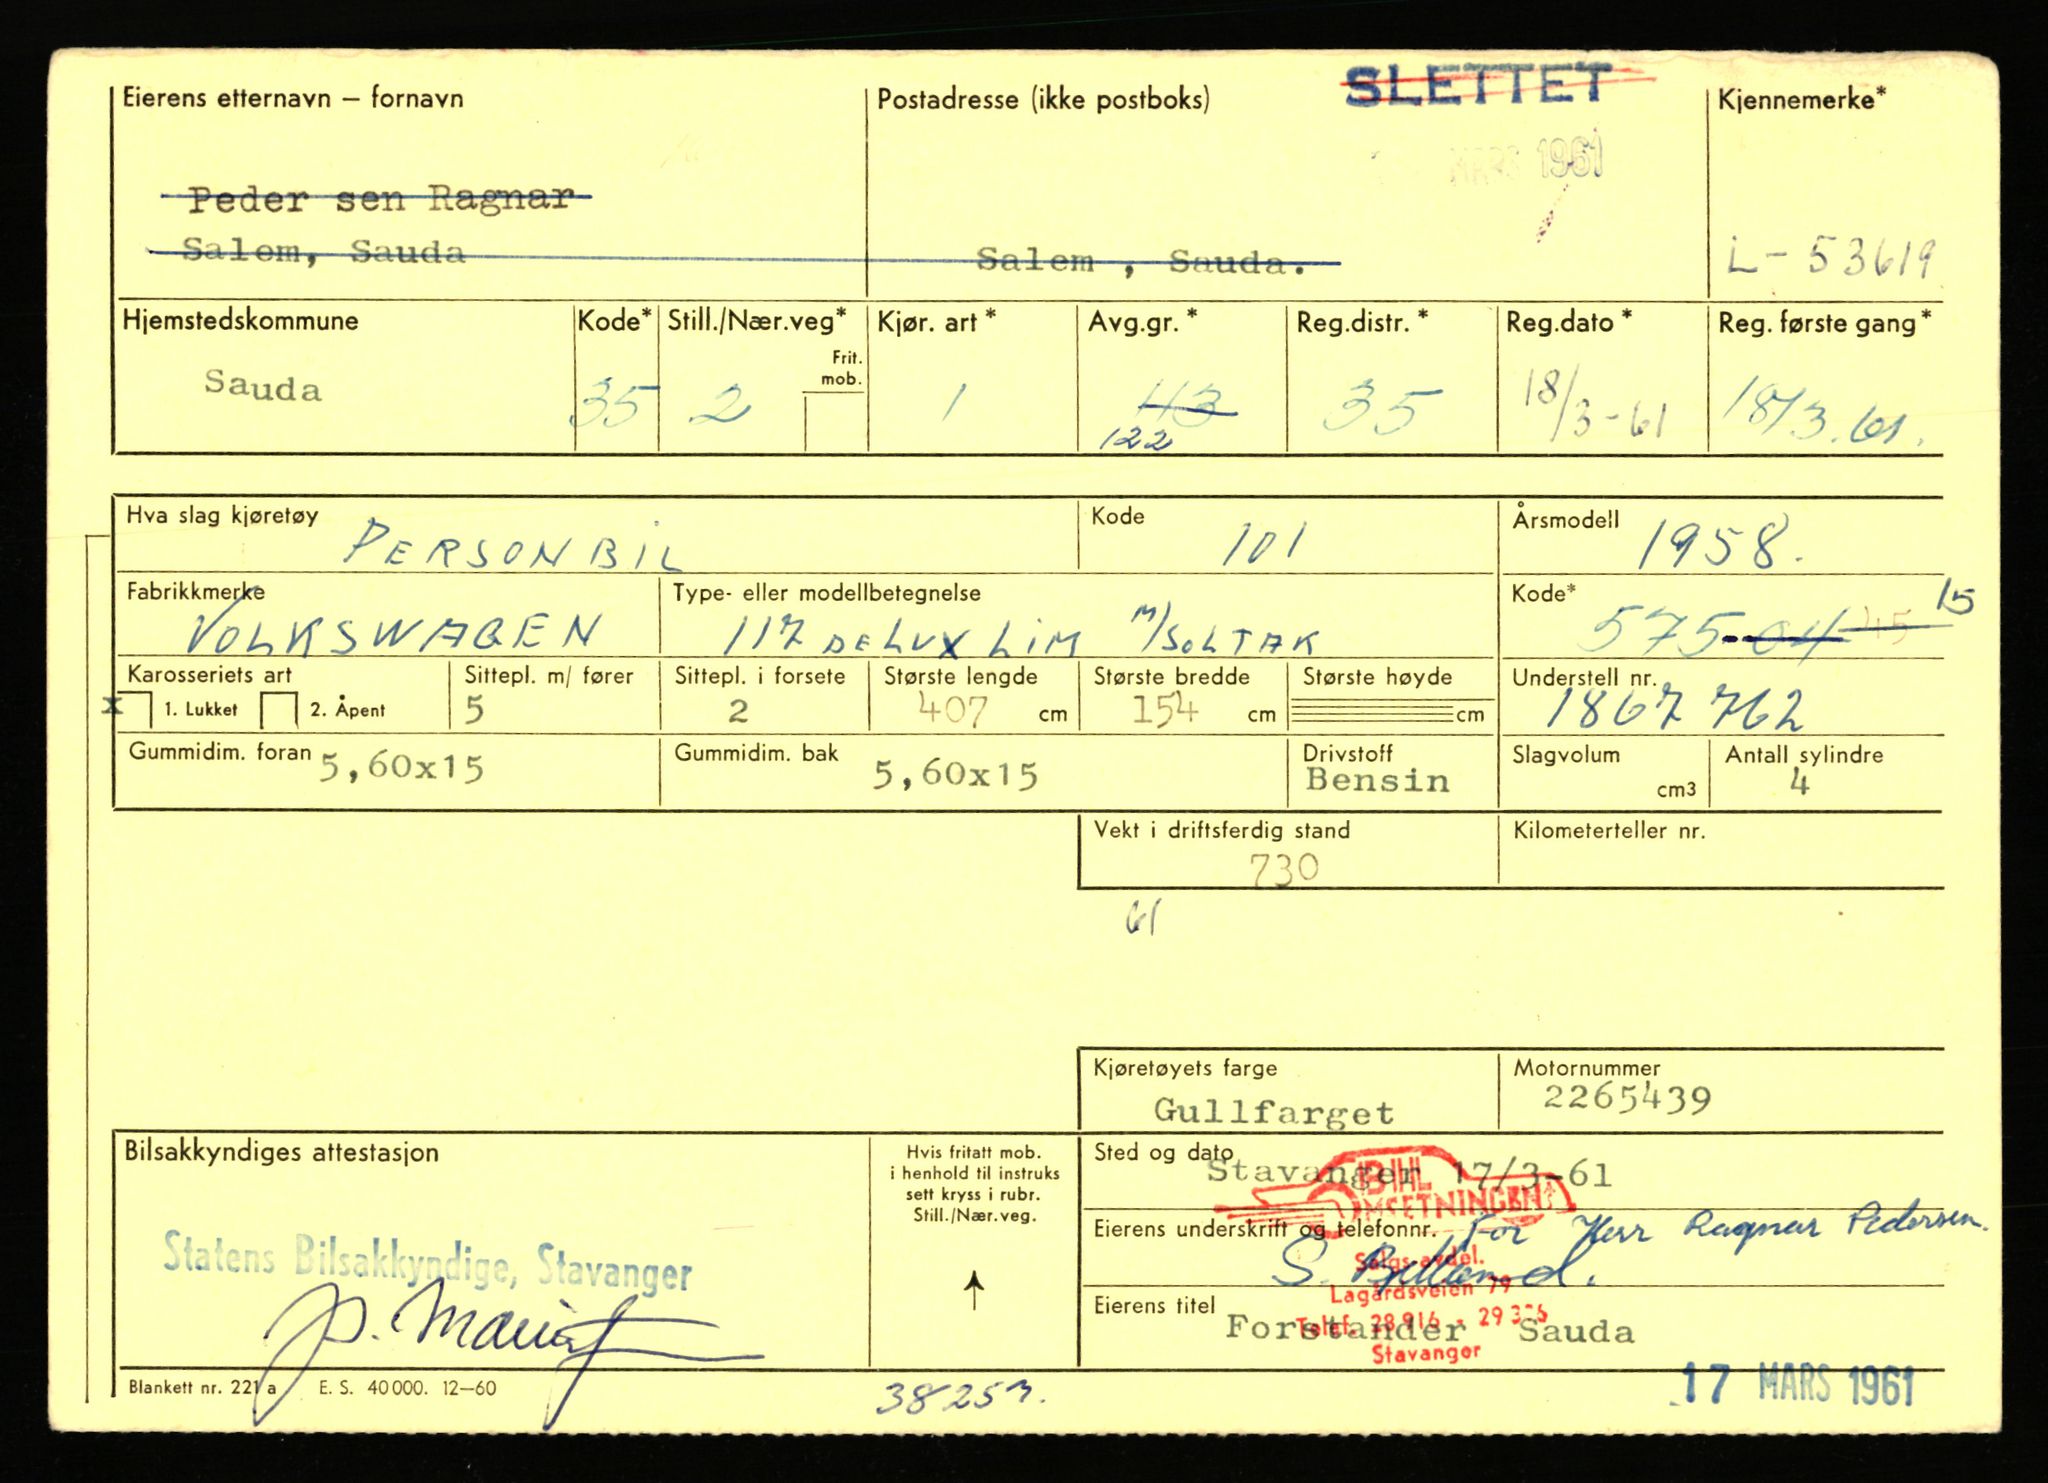 Eierens etternavn – fornavn
Postadresse (ikke postboks)
SLETTET
Kjennemerke*
MARS 1961
Peder sen Ragnar
Salem, Sauda
Salem , Sauda.
L - 53619
Hjemstedskommune
Kode*
Still./Nær.veg*
Kjør. art *
Avg.gr. *
Reg.distr. *
Reg.dato *
Reg. første gang*
Frit.
mob.
Sauda
35
2
1
43
122
35
18/3-61
18/3.61.
Hva slag kjøretøy
PERSONBIL
Kode
101
Årsmodell
1958.
Fabrikkmerke
VOLKSWAGEN
Type- eller modellbetegnelse
117 DE LUX LIM M/SOLTAK
Kode*
575-04 45 15
Karosseriets art
x 1. Lukket 2. Åpent
Sittepl. m/ fører
5
Sittepl. i forsete
2
Største lengde
407 cm
Største bredde
154 cm
Største høyde
cm
Understell nr.
1867762
Gummidim. foran 5,60x15
Gummidim. bak 5,60x15
Drivstoff
Bensin
Slagvolum
cm3
Antall sylindre
4
Vekt i driftsferdig stand
730
Kilometerteller nr.
61
Kjøretøyets farge
Gullfarget
Motornummer
2265439
Bilsakkyndiges attestasjon
Hvis fritatt mob.
i henhold til instruks
sett kryss i rubr.
Still./Nær.veg.
Statens Bilsakkyndige, Stavanger
Sted og dato
Stavanger 17/3-61
BIL
OMSETNINGEN
Eierens underskrift og telefonnr. For Herr Ragnar Pedersen.
Salgs-avdel.
Lagårdsveien 79
Eierens titel
Telef. 28 916 - 29 336
Forstander Sauda
Stavanger
Blankett nr. 221 a E. S. 40 000. 12—60
38253.
17 MARS 1961